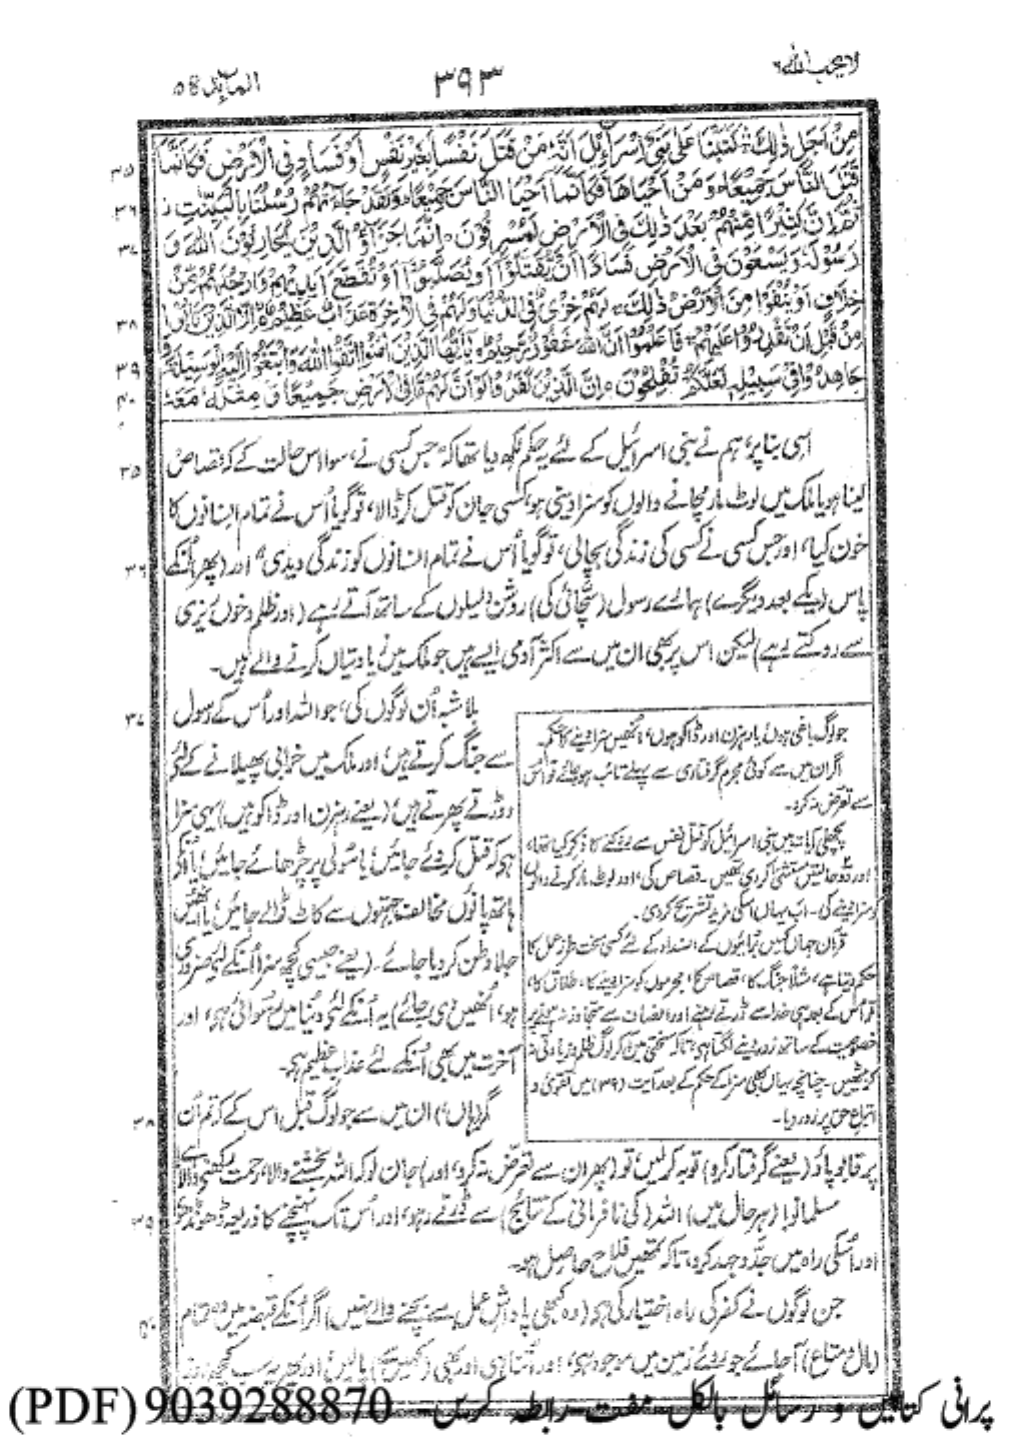 لا یحب اللہ ٦
٣٩٣
المائدۃ ٥
مِنْ اَجْلِ ذٰلِكَ ۛ كَتَبْنَا عَلٰی بَنِیْۤ اِسْرَآءِیْلَ اَنَّهٗ مَنْ قَتَلَ نَفْسًۢا بِغَیْرِ نَفْسٍ اَوْ فَسَادٍ فِی الْاَرْضِ فَكَاَنَّمَا ٣٥
قَتَلَ النَّاسَ جَمِیْعًا ؕ وَ مَنْ اَحْیَاهَا فَكَاَنَّمَاۤ اَحْیَا النَّاسَ جَمِیْعًا ؕ وَ لَقَدْ جَآءَتْهُمْ رُسُلُنَا بِالْبَیِّنٰتِ ز ٣٦
ثُمَّ اِنَّ كَثِیْرًا مِّنْهُمْ بَعْدَ ذٰلِكَ فِی الْاَرْضِ لَمُسْرِفُوْنَ ۝ اِنَّمَا جَزٰٓؤُا الَّذِیْنَ یُحَارِبُوْنَ اللّٰهَ وَ ٣٧
رَسُوْلَهٗ وَ یَسْعَوْنَ فِی الْاَرْضِ فَسَادًا اَنْ یُّقَتَّلُوْۤا اَوْ یُصَلَّبُوْۤا اَوْ تُقَطَّعَ اَیْدِیْهِمْ وَ اَرْجُلُهُمْ مِّنْ
خِلَافٍ اَوْ یُنْفَوْا مِنَ الْاَرْضِ ؕ ذٰلِكَ لَهُمْ خِزْیٌ فِی الدُّنْیَا وَ لَهُمْ فِی الْاٰخِرَةِ عَذَابٌ عَظِیْمٌ ۝ اِلَّا الَّذِیْنَ تَابُوْا
مِنْ قَبْلِ اَنْ تَقْدِرُوْا عَلَیْهِمْ ۚ فَاعْلَمُوْۤا اَنَّ اللّٰهَ غَفُوْرٌ رَّحِیْمٌ ۝ یٰۤاَیُّهَا الَّذِیْنَ اٰمَنُوا اتَّقُوا اللّٰهَ وَ ابْتَغُوْۤا اِلَیْهِ الْوَسِیْلَةَ وَ ٣٨
جَاهِدُوْا فِیْ سَبِیْلِهٖ لَعَلَّكُمْ تُفْلِحُوْنَ ۝ اِنَّ الَّذِیْنَ كَفَرُوْا لَوْ اَنَّ لَهُمْ مَّا فِی الْاَرْضِ جَمِیْعًا وَّ مِثْلَهٗ مَعَهٗ ٣٩ ٤٠
اسی بنا پر، ہم نے بنی اسرائیل کے لئے یہ حکم لکھ دیا تھا کہ "جس کسی نے، سوا اس حالت کے کہ قصاص ٣٥
لینا ہو یا ملک میں لوٹ مار مچانے والوں کو سزا دینی ہو، کسی جان کو قتل کر ڈالا، تو گویا اُس نے تمام انسانوں کا
خون کیا، اور جس کسی نے کسی کی زندگی بچالی، تو گویا اُس نے تمام انسانوں کو زندگی دیدی" اور (پھر) اُنکے ٣٦
پاس (یکے بعد دیگرے) ہمارے رسول (سچائی کی) روشن دلیلوں کے ساتھ آتے رہے (اور ظلم و خوں ریزی
سے روکتے رہے) لیکن اس پر بھی ان میں سے اکثر آدمی ایسے ہیں جو ملک میں زیادتیاں کرنے والے ہیں۔
بلاشبہ اُن لوگوں کی، جو اللہ اور اُس کے رسول ٣٧
سے جنگ کرتے ہیں، اور ملک میں خرابی پھیلانے کے لئے
دوڑتے پھرتے ہیں، (یعنے رہزن اور ڈاکو ہیں) یہی سزا
ہے کہ قتل کر دئے جائیں، یا سولی پر چڑھائے جائیں، یا اُنکے
ہاتھ پاؤں مخالف جہتوں سے کاٹ ڈالے جائیں، یا اُنھیں
جلاوطن کر دیا جائے۔ (یعنے جیسی کچھ سزا اُنکے لئے ضروری
ہو، اُنھیں دی جائے) یہ اُنکے لئے دُنیا میں رسوائی ہے، اور
آخرت میں بھی اُنکے لئے عذاب عظیم ہے۔
مگر (ہاں،) ان میں سے جو لوگ قبل اس کے کہ تم اُن ٣٨
جو لوگ باغی ہوں، یا رہزن اور ڈاکو ہوں، اُنھیں سزا دینے کا حکم۔
اگر ان میں سے کوئی مجرم گرفتاری سے پہلے تائب ہو جائے تو اُس
سے تعرض نہ کرو۔
پچھلی آیات میں بنی اسرائیل کو قتل نفس سے روکنے کا ذکر کیا تھا،
اور دو حالتیں مستثنٰی کر دی تھیں۔ قصاص کی، اور لوٹ مار کرنے والوں
کو سزا دینے کی۔ اب یہاں اسکی مزید تشریح کر دی۔
قرآن جہاں کہیں بُرائیوں کے انسداد کے لئے کسی سخت طرز عمل کا
حکم دیتا ہے، مثلاً جنگ کا، قصاص کا، مجرموں کو سزا دینے کا، طلاق کا،
تو اُس کے بعد ہی خدا سے ڈرتے رہنے اور انصاف سے متجاوز نہ ہونے پر
خصوصیت کے ساتھ زور دینے لگتا ہے، تاکہ سختی میں آکر لوگ ظلم و زیادتی نہ
کر بیٹھیں۔ چنانچہ یہاں بھی سزا کے حکم کے بعد آیت (٣٩) میں تقویٰ و
اتباع حق پر زور دیا۔
پر قابو پاؤ (یعنے گرفتار کرو) توبہ کر لیں، تو (پھر ان سے تعرض نہ کرو، اور) جان لو کہ اللہ بخشنے والا، رحمت رکھنے والا ہے۔
مسلمانو! (ہر حال میں) اللہ (کی نافرمانی کے نتائج) سے ڈرتے رہو، اور اُس تک پہنچنے کا ذریعہ ڈھونڈھو ٣٩
اور اُسکی راہ میں جدّ و جہد کرو، تاکہ تمھیں فلاح حاصل ہو۔
جن لوگوں نے کفر کی راہ اختیار کی ہے (وہ کبھی پاداش عمل سے بچنے والے نہیں) اگر اُنکے قبضہ میں وہ تمام ٤٠
(مال و متاع) آجائے جو روئے زمین میں موجود ہے، اور اُتنا ہی اور بھی (کہیں سے) پالیں، اور پھر یہ سب کچھ
پرانی کتابیں و رسائل بالکل مفت رابطہ کریں۔ 9039288870 (PDF)